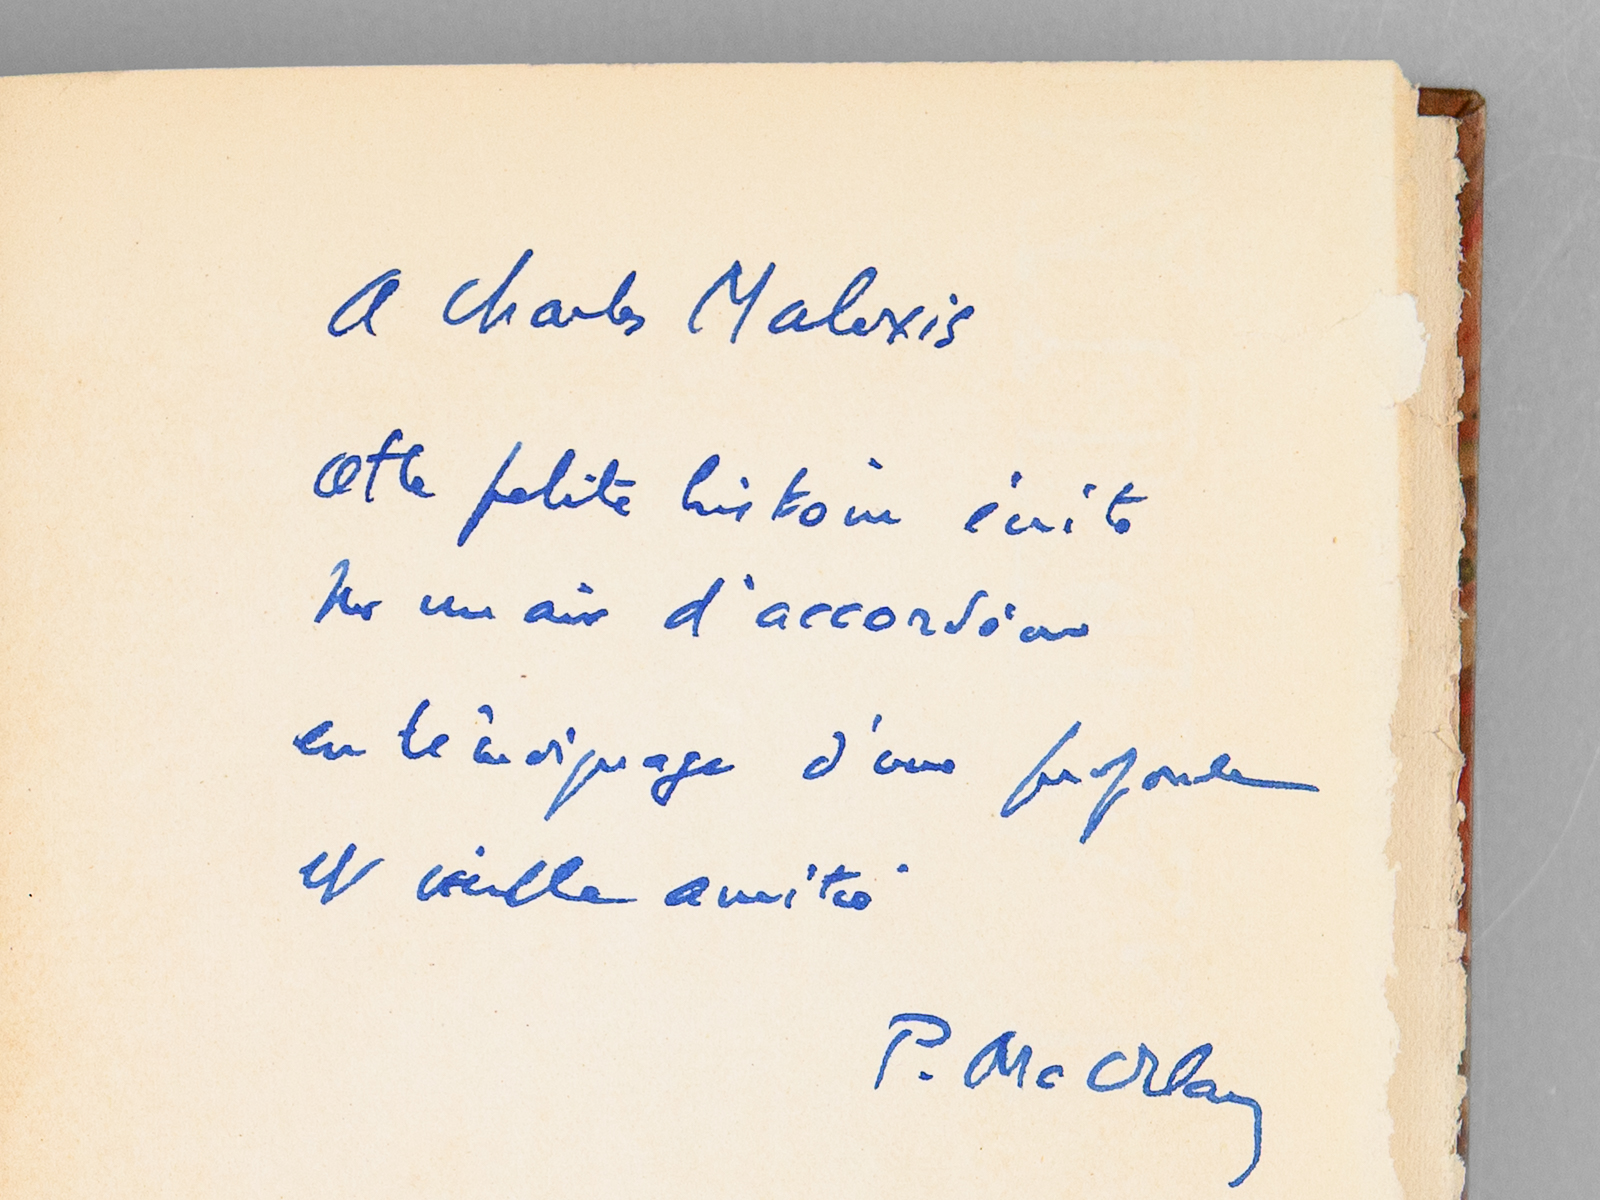 A Charles Malexis
cette petite histoire écrite
sur un air d'accordéon
en témoignage d'une profonde
et vieille amitié
P. Mac Orlan